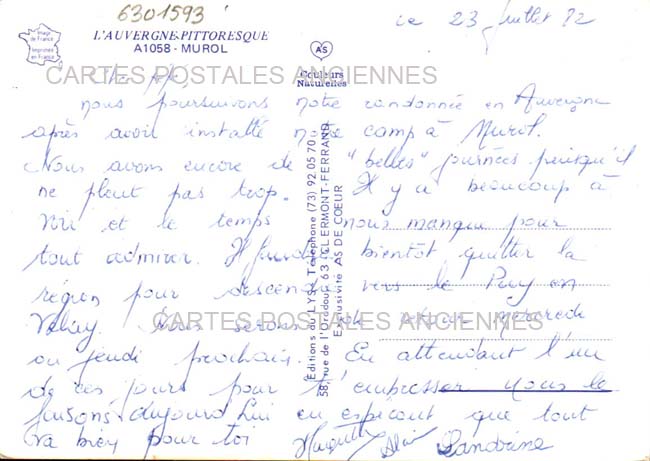 6301593
le 23 Juillet 82
Image
de France
Imprimée
en France
L'AUVERGNE-PITTORESQUE
A1058 - MUROL
AS
Couleurs
Naturelles
CARTES POSTALES ANCIENNES
nous poursuivons notre randonnée en Auvergne
après avoir installé notre camp à Murol.
Nous avons encore de "belles" journées puisqu'il
ne pleut pas trop. Il y a beaucoup à
voir et le temps nous manque pour
tout admirer. Il faudra bientôt quitter la
région pour descendre vers le Puy en
Velay. Nous serons de retour mercredi
ou jeudi prochain. En attendant l'un
de ces jours pour t'embrasser nous le
faisons aujourd'hui en espérant que tout
va bien pour toi Huguette Alain Sandrine
CARTES POSTALES ANCIENNES
Éditions du LYS - Téléphone (73) 92 05 70
58, rue de l'Oradou 63 - CLERMONT-FERRAND
Exclusivité AS DE COEUR